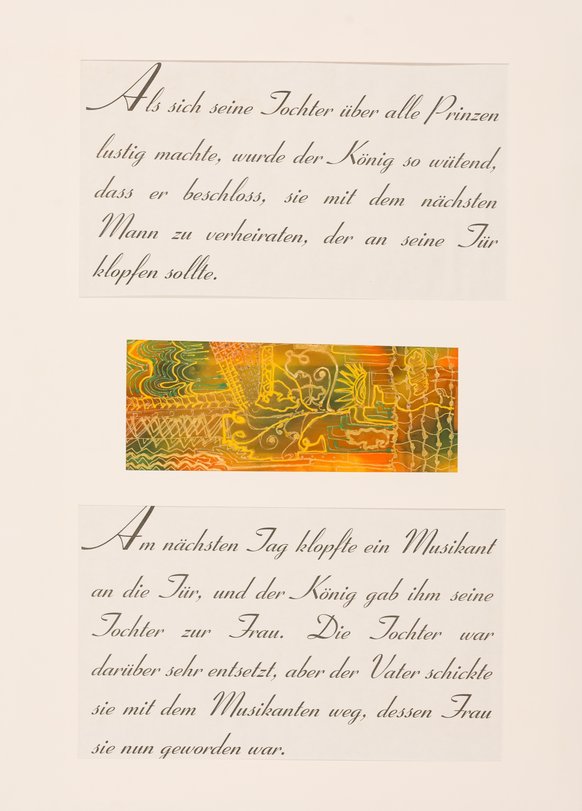 Als sich seine Tochter über alle Prinzen
lustig machte, wurde der König so wütend,
dass er beschloss, sie mit dem nächsten
Mann zu verheiraten, der an seine Tür
klopfen sollte.
Am nächsten Tag klopfte ein Musikant
an die Tür, und der König gab ihm seine
Tochter zur Frau. Die Tochter war
darüber sehr entsetzt, aber der Vater schickte
sie mit dem Musikanten weg, dessen Frau
sie nun geworden war.